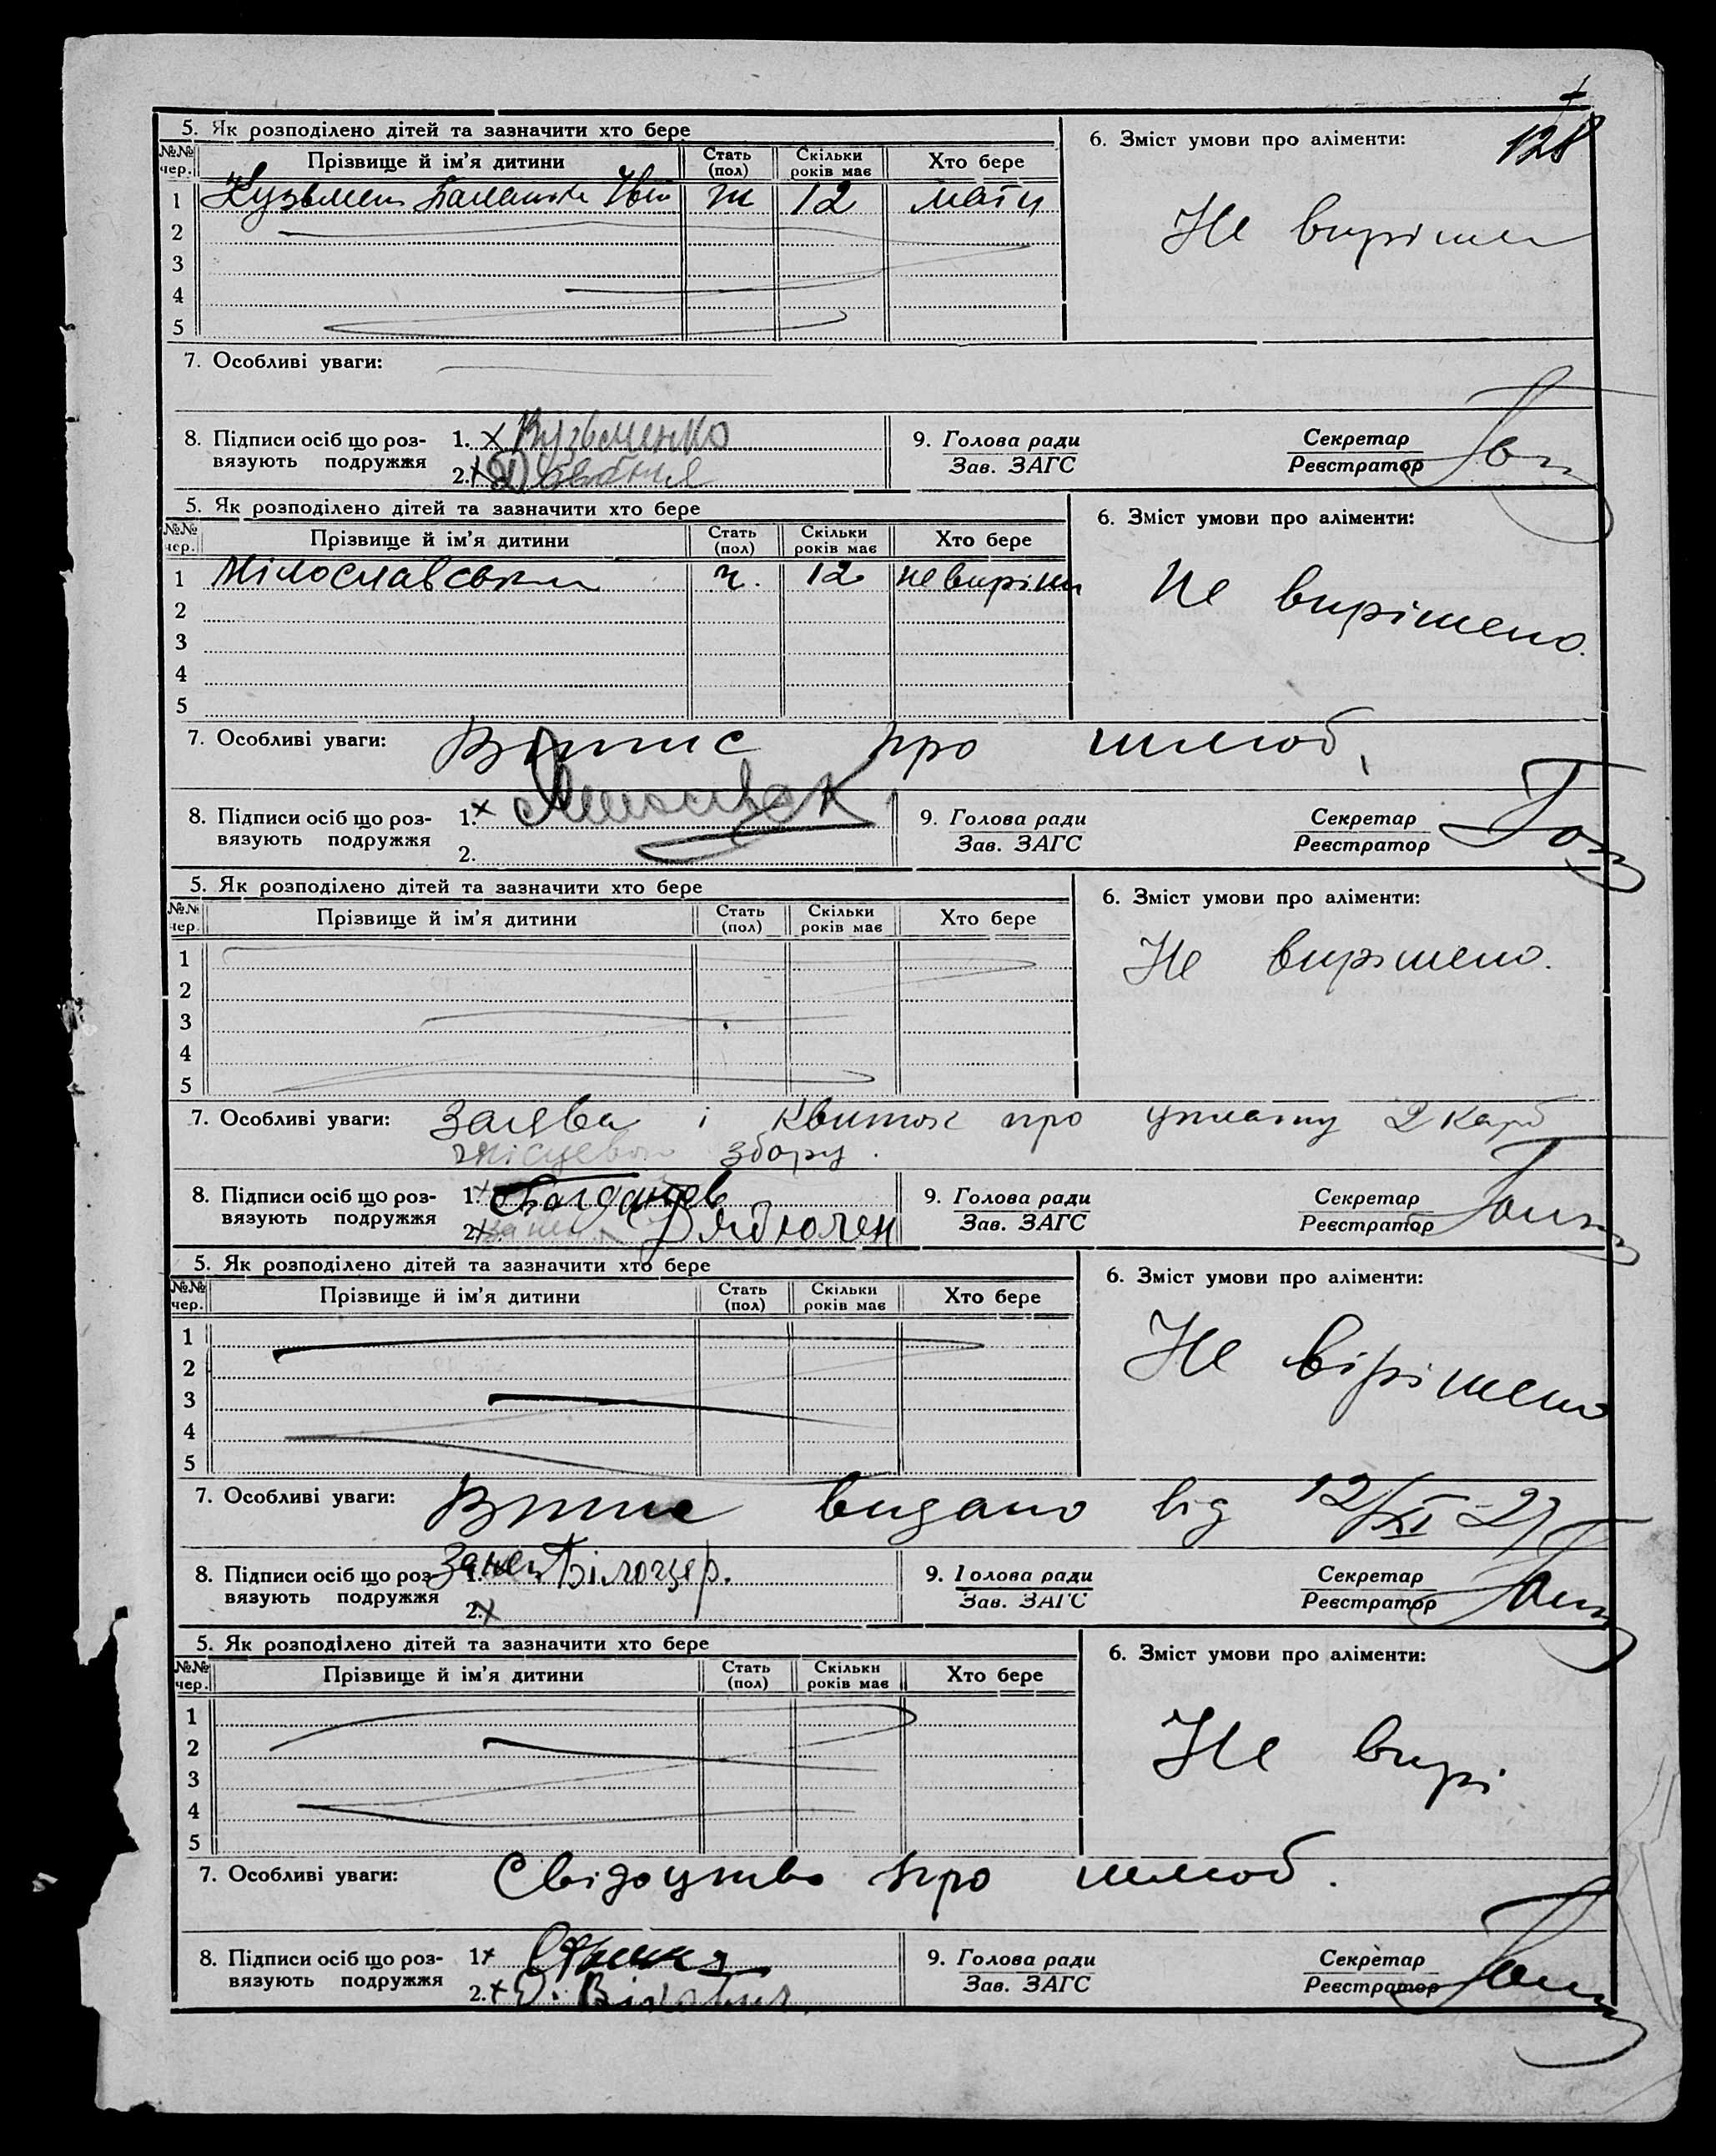 128
5. Як розподілено дітей та зазначити хто бере
6. Зміст умови про аліменти:
№№ чер. Прізвище й ім'я дитини Стать (пол) Скільки років має Хто бере
1 Кузьмен ж 12 мати
Не виріше
2
3
4
5
7. Особливі уваги:
8. Підписи осіб що роз-
вязують подружжя
1. x Кузьменко
2. x
9. Голова ради
Зав. ЗАГС
Секретар
Реєстратор
5. Як розподілено дітей та зазначити хто бере
6. Зміст умови про аліменти:
№№ чер. Прізвище й ім'я дитини Стать (пол) Скільки років має Хто бере
1 Мілославськи ч. 12 не виріш
Не вирішено.
2
3
4
5
7. Особливі уваги: Випис про шлюб,
8. Підписи осіб що роз-
вязують подружжя
1. x
2.
9. Голова ради
Зав. ЗАГС
Секретар
Реєстратор
5. Як розподілено дітей та зазначити хто бере
6. Зміст умови про аліменти:
№№ чер. Прізвище й ім'я дитини Стать (пол) Скільки років має Хто бере
Не вирішено.
1
2
3
4
5
7. Особливі уваги: Заява і квиток про уплату 2 карб
місцевого збору.
8. Підписи осіб що роз-
вязують подружжя
1. x Богданов
2. x
9. Голова ради
Зав. ЗАГС
Секретар
Реєстратор
5. Як розподілено дітей та зазначити хто бере
6. Зміст умови про аліменти:
№№ чер. Прізвище й ім'я дитини Стать (пол) Скільки років має Хто бере
Не вірішено
1
2
3
4
5
7. Особливі уваги: Випис видано від 12/XI-27
8. Підписи осіб що роз-
вязують подружжя
1. Білоцер.
2. x
9. Голова ради
Зав. ЗАГС
Секретар
Реєстратор
5. Як розподілено дітей та зазначити хто бере
6. Зміст умови про аліменти:
№№ чер. Прізвище й ім'я дитини Стать (пол) Скільки років має Хто бере
Не вирі
1
2
3
4
5
7. Особливі уваги: Свідоцтво про шлюб.
8. Підписи осіб що роз-
вязують подружжя
1. x
2. x
9. Голова ради
Зав. ЗАГС
Секретар
Реєстратор